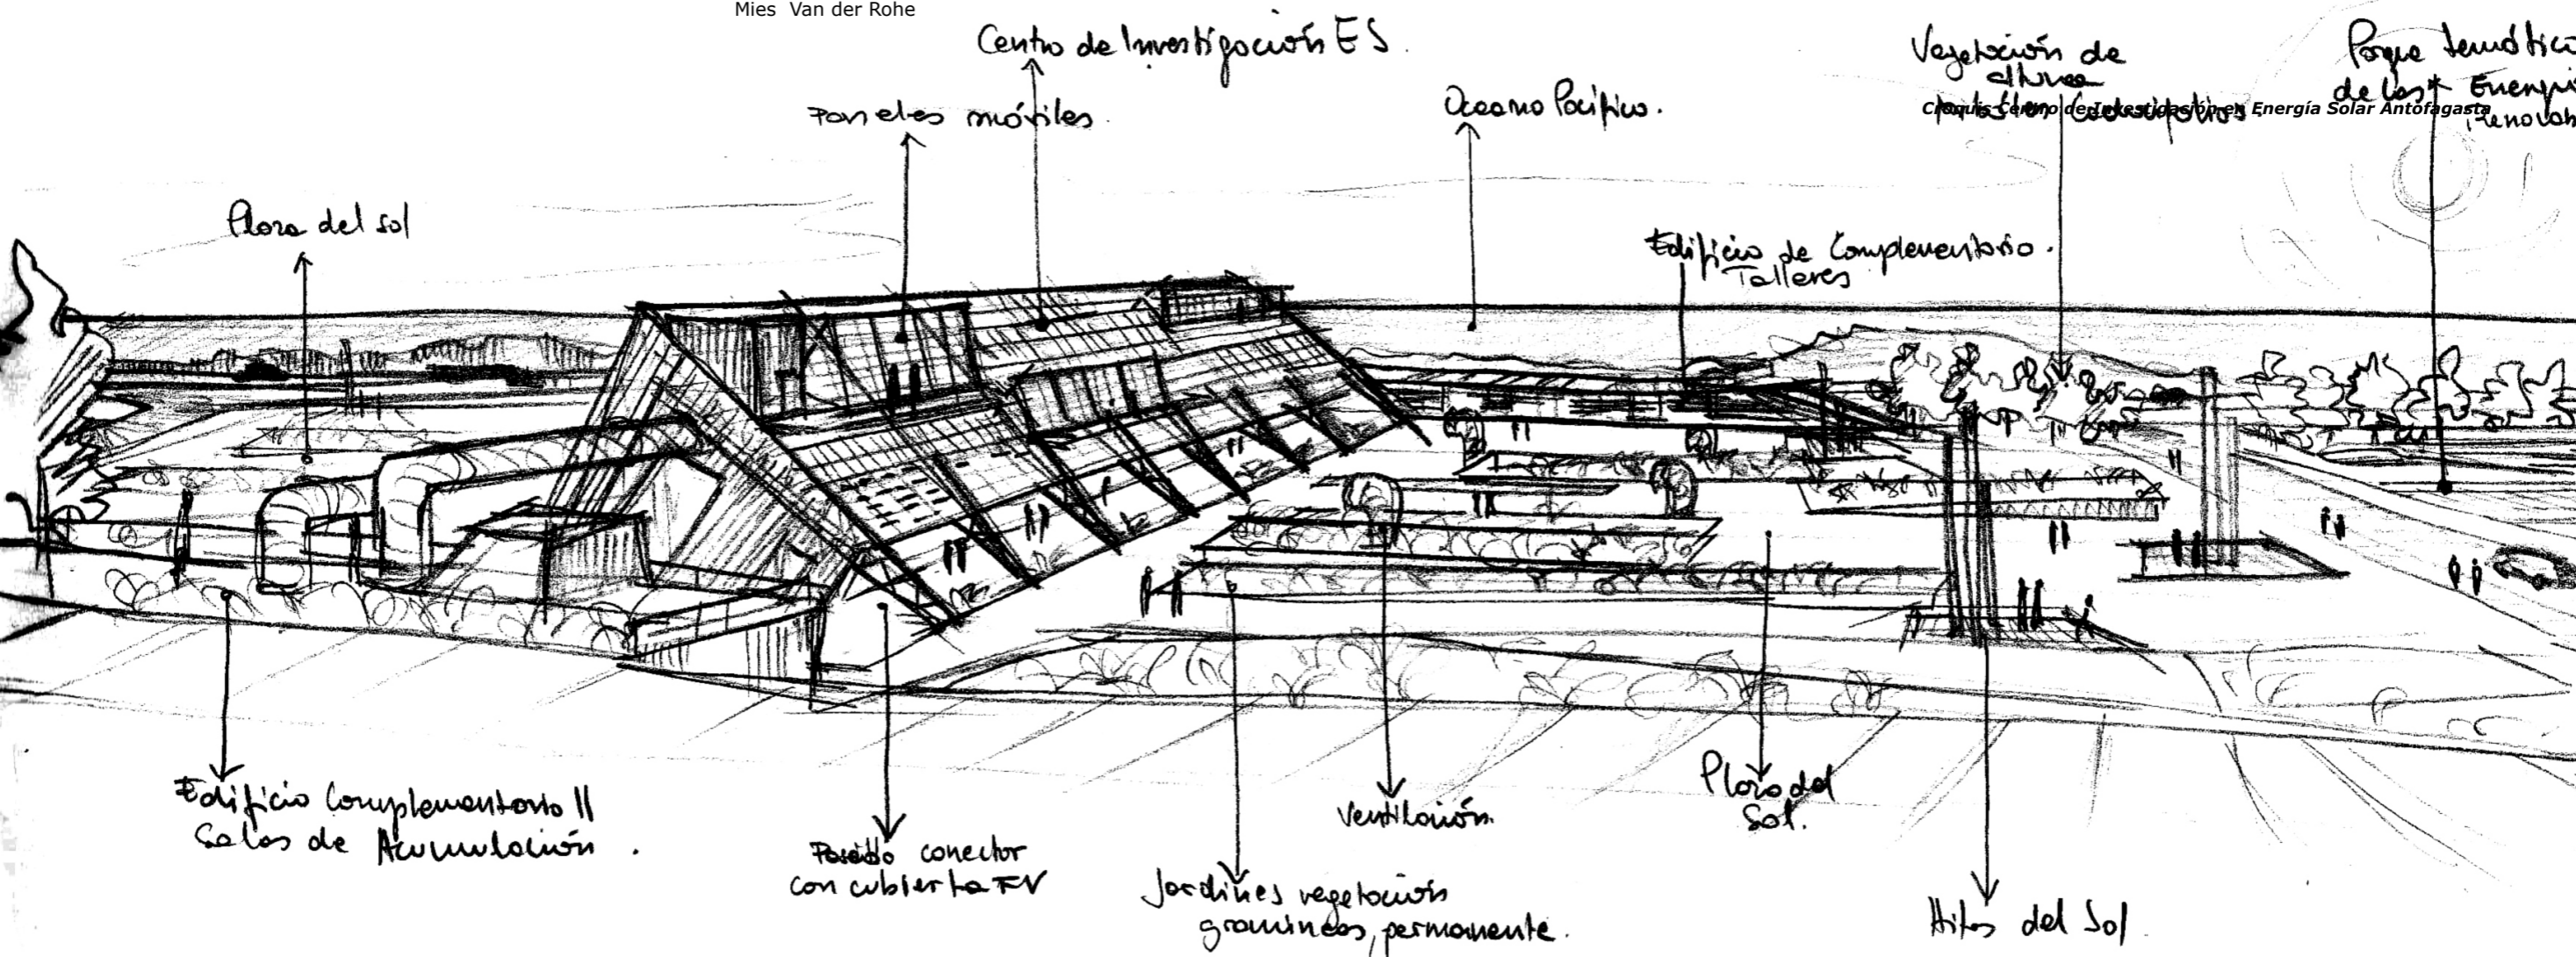 Mies Van der Rohe
Centro de Investigación ES.
Paneles móviles.
Oceano Pacífico.
Vegetación de
altura
Parque temático
de las Energi
renovab
Croquis Centro de Investigación en Energía Solar Antofagasta
Plaza del sol
Edificio de Complementario.
Talleres
Edificio Complementario II
Salas de Acumulación.
conector
con cubierta FV
Jardines vegetación
gramineas, permanente.
Ventilación.
Plaza del
Sol.
Hitos del Sol.